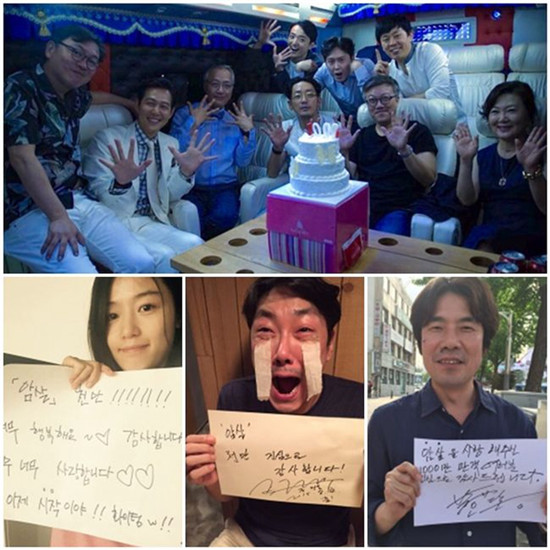 「암살」 천만 !!!!!!!
너무 행복해요~♡ 감사합니다
너무 너무 사랑합니다♡♡
이제 시작이야!! 화이팅 w!!
'암살'
천만 진심으로
감사합니다!
암살을 사랑해주신
1000만 관객 여러분
진심으로 감사드립니다.